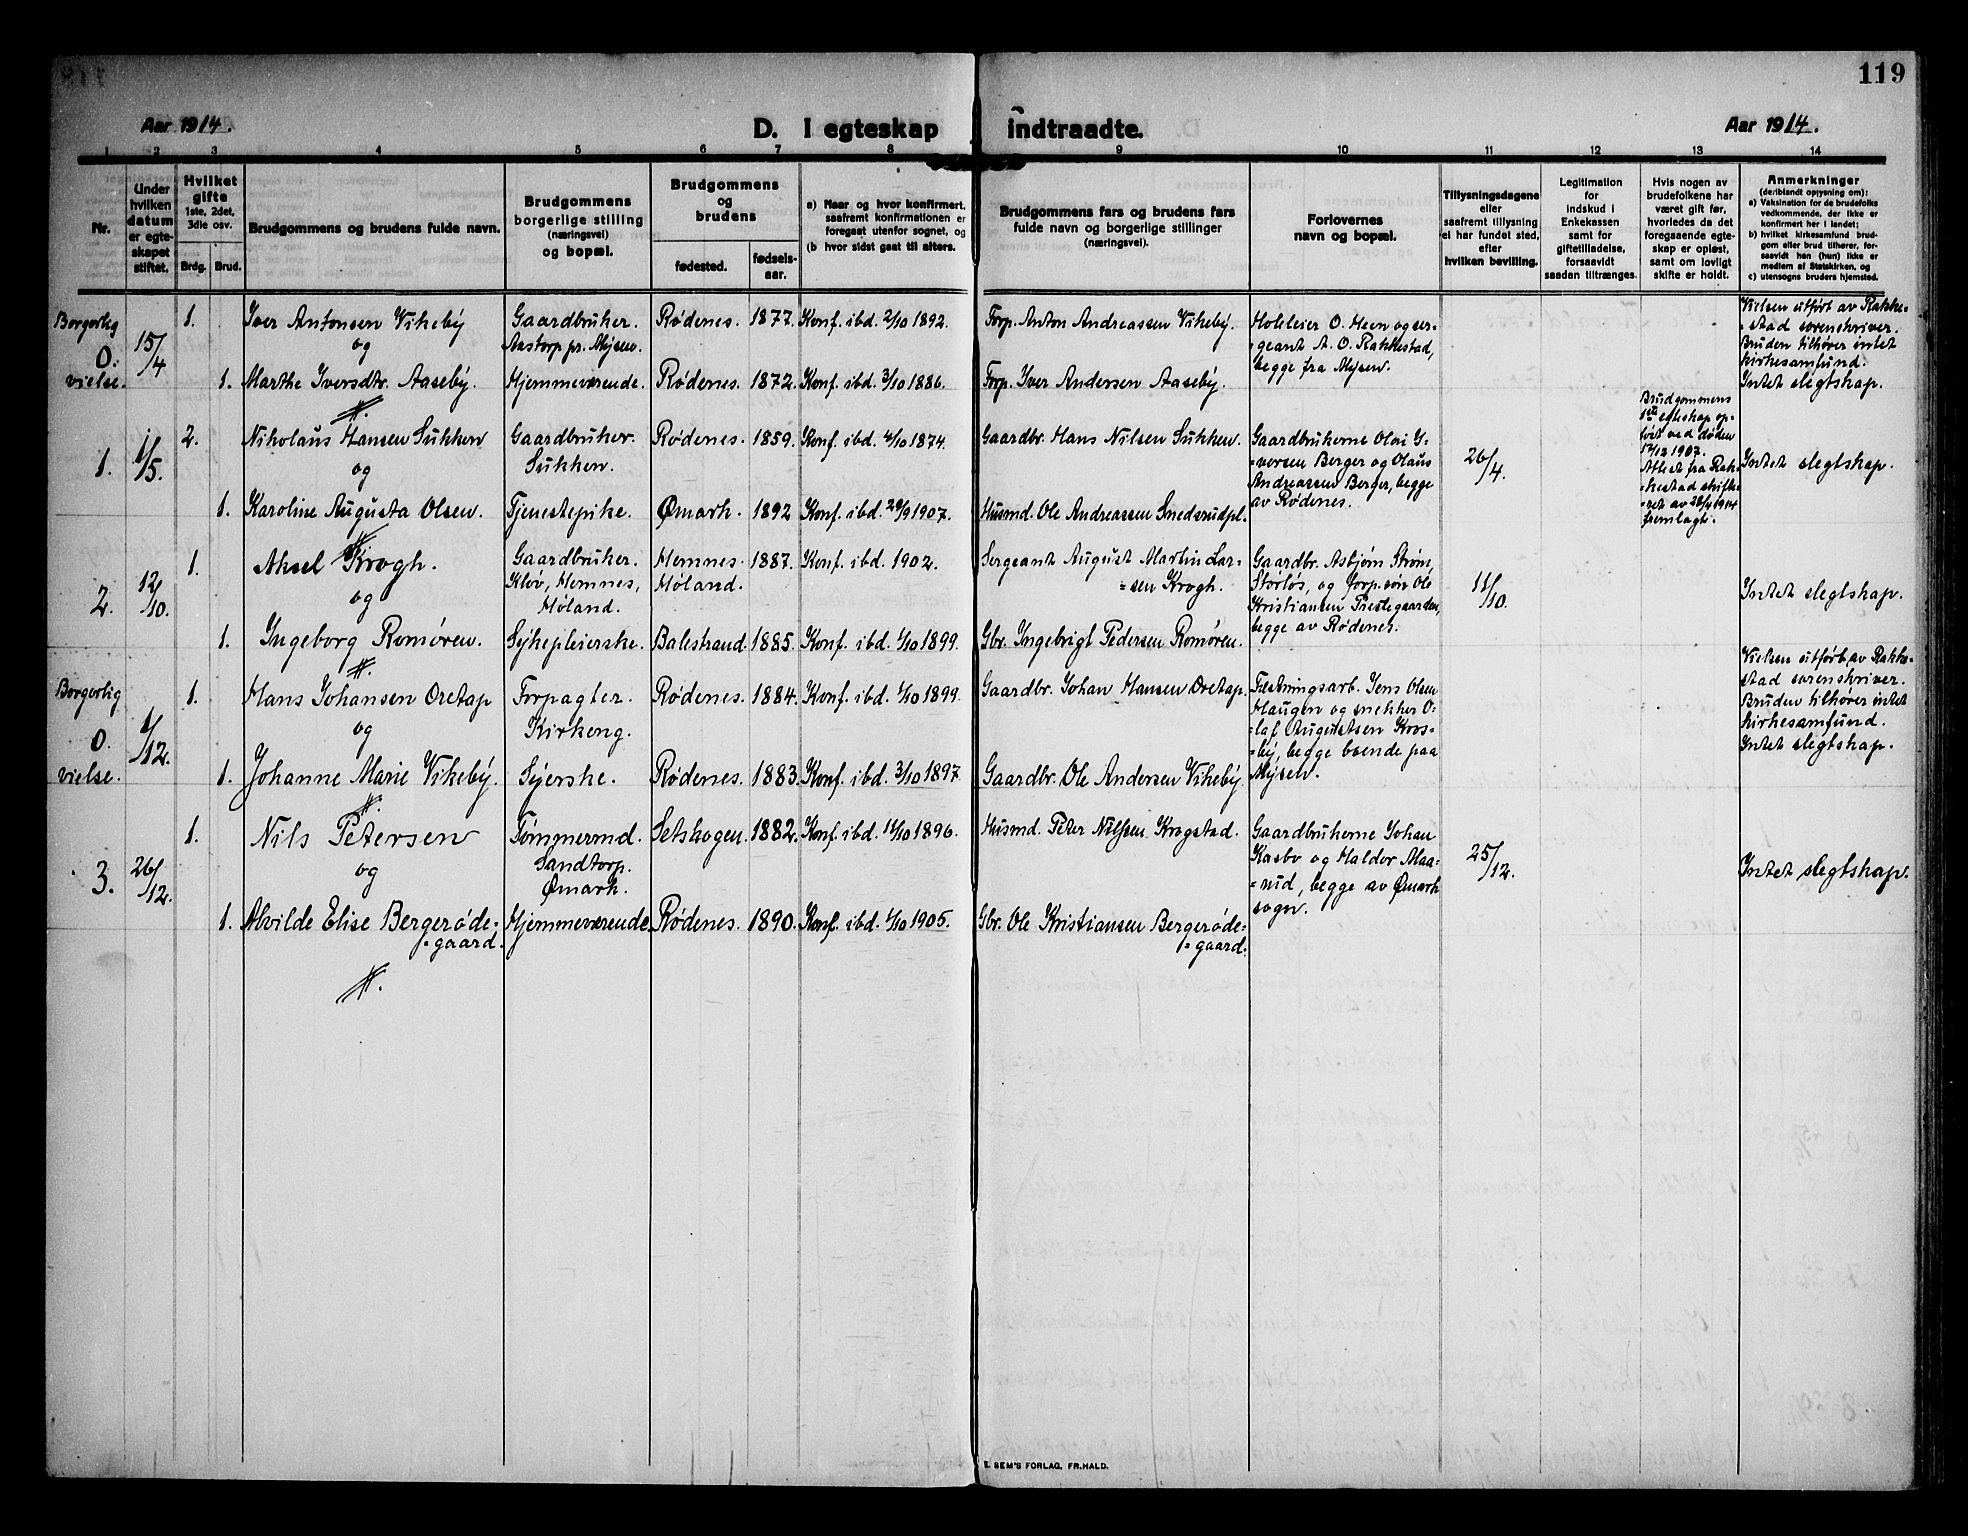 119
Aar 1914.
D. I egteskap indtraadte.
Aar 1914.
1 2 3 4 5 6 7 8 9 10 11 12 13 14
Nr.
Under
hvilken
datum
er egte-
skapet
stiftet.
Hvilket
gifte
1ste, 2det,
3die osv.
Brdg. Brud.
Brudgommens og brudens fulde navn.
Brudgommens
borgerlige stilling
(næringsvei)
og bopæl.
Brudgommens
og
brudens
fødested.
fødsels-
aar.
a) Naar og hvor konfirmert,
saafremt konfirmationen er
foregaat utenfor sognet, og
(b hvor sidst gaat til alters.
Brudgommens fars og brudens fars
fulde navn og borgerlige stillinger
(næringsvei).
Forlovernes
navn og bopæl.
Tillysningsdagene
eller
saafremt tillysning
ei har fundet sted,
efter
hvilken bevilling.
Legitimation
for
indskud i
Enkekassen
samt for
giftetilladelse,
forsaavidt
saadan tiltrænges.
Hvis nogen av
brudefolkene har
været gift før,
hvorledes da det
foregaaende egte-
skap er opløst,
samt om lovligt
skifte er holdt.
Anmerkninger
(deriblandt oplysning om):
a) Vaksination for de brudefolks
vedkommende, der ikke er
konfirmert her i landet;
b) hvilket kirkesamfund brud-
gom eller brud tilhører, for-
saavidt han (hun) ikke er
medlem af Statskirken, og
c) utensogns bruders hjemsted.
Borgerlig
0.
vielse.
15/4
1.
Iver Antonsen Vikeby
og
Gaardbruker.
Aastorp pr. Mysen.
Rødenes. 1877. Konf. ibd. 2/10 1892.
Forp. Anton Andreassen Vikeby.
Hoteleier O. Heen og ser-
=geant A. O. Rakkestad,
begge fra Mysen.
Vielsen utført av Rakke-
=stad sorenskriver.
Bruden tilhører intet
kirkesamfund.
Intet slegtskap.
1. Marthe Iversdtr. Aaseby. Hjemmeværende. Rødenes. 1872. Konf. ibd. 3/10 1886. Forp. Iver Andersen Aaseby.
1. 1/5. 2.
Nikolaus Hansen Sukken
og
Gaardbruker.
Sukken.
Rødenes. 1859. Konf. ibd. 4/10 1874.
Gaardbr. Hans Nilsen Sukken.
Gaardbrukerne Olai I-
=versen Berger og Olaus
Andreassen Berger, begge
av Rødenes.
26/4.
Brudgommens
1ste egteskap op-
løst ved døden
12/12 1907.
Attest fra Rak-
=kestad skifte-
=ret av 28/4 1914
fremlagt.
Intet slegtskap.
1. Karoline Augusta Olsen. Tjenestepike. Ømark. 1892 Konf. ibd. 29/9 1907. Husmd. Ole Andreassen Snedsrudpl.
2. 12/10. 1.
Aksel Krogh.
og
Gaardbruker.
Kløv, Hemnes,
Høland.
Hemnes
Høland.
1887. Konf. ibd. 1902.
Sergeant August Martin Lar-
=sen Krogh.
Gaardbr. Asbjørn Strøm,
Storløs, og forp.søn Ole
Kristiansen Prestegaarden,
begge av Rødenes.
11/10.
Intet slegtskap.
1. Ingeborg Romøren. Sykepleierske. Balestrand. 1885. Konf. ibd. 1/10 1899. Gbr. Ingebrigt Pedersen Romøren.
Borgerlig
0.
vielse.
1/12. 1.
Hans Johansen Oretap
og
Forpagter.
Kirkeng.
Rødenes. 1884. Konf. ibd. 1/10 1899.
Gaardbr. Johan Hansen Oretap.
Fæstningsarb. Jens Olsen
Haugen og snekker O-
=laf Augustsen Kros-
=by, begge boende paa
Mysen.
Vielsen utført av Rakke-
stad sorenskriver.
Bruden tilhører intet
kirkesamfund.
Intet slegtskap.
1. Johanne Marie Vikeby. Syerske. Rødenes. 1883. Konf. ibd. 3/10 1897. Gaardbr. Ole Andersen Vikeby.
3. 26/12. 1.
Nils Petersen
og
Tømmermd.
Sandtorp.
Ømark.
Setskogen. 1882. Konf. ibd. 11/10 1896.
Husmd. Peter Nilssen Krogstad.
Gaardbrukerne Johan
Kasbo og Haldor Maa-
=rud, begge av Ømark
sogn.
25/12.
Intet slegtskap.
1. Alvilde Elise Bergerøde-
=gaard.
Hjemmeværende. Rødenes. 1890. Konf. ibd. 1/10 1905.
Gbr. Ole Kristiansen Bergerøde-
=gaard.
E. SEM'S FORLAG, FR.HALD.